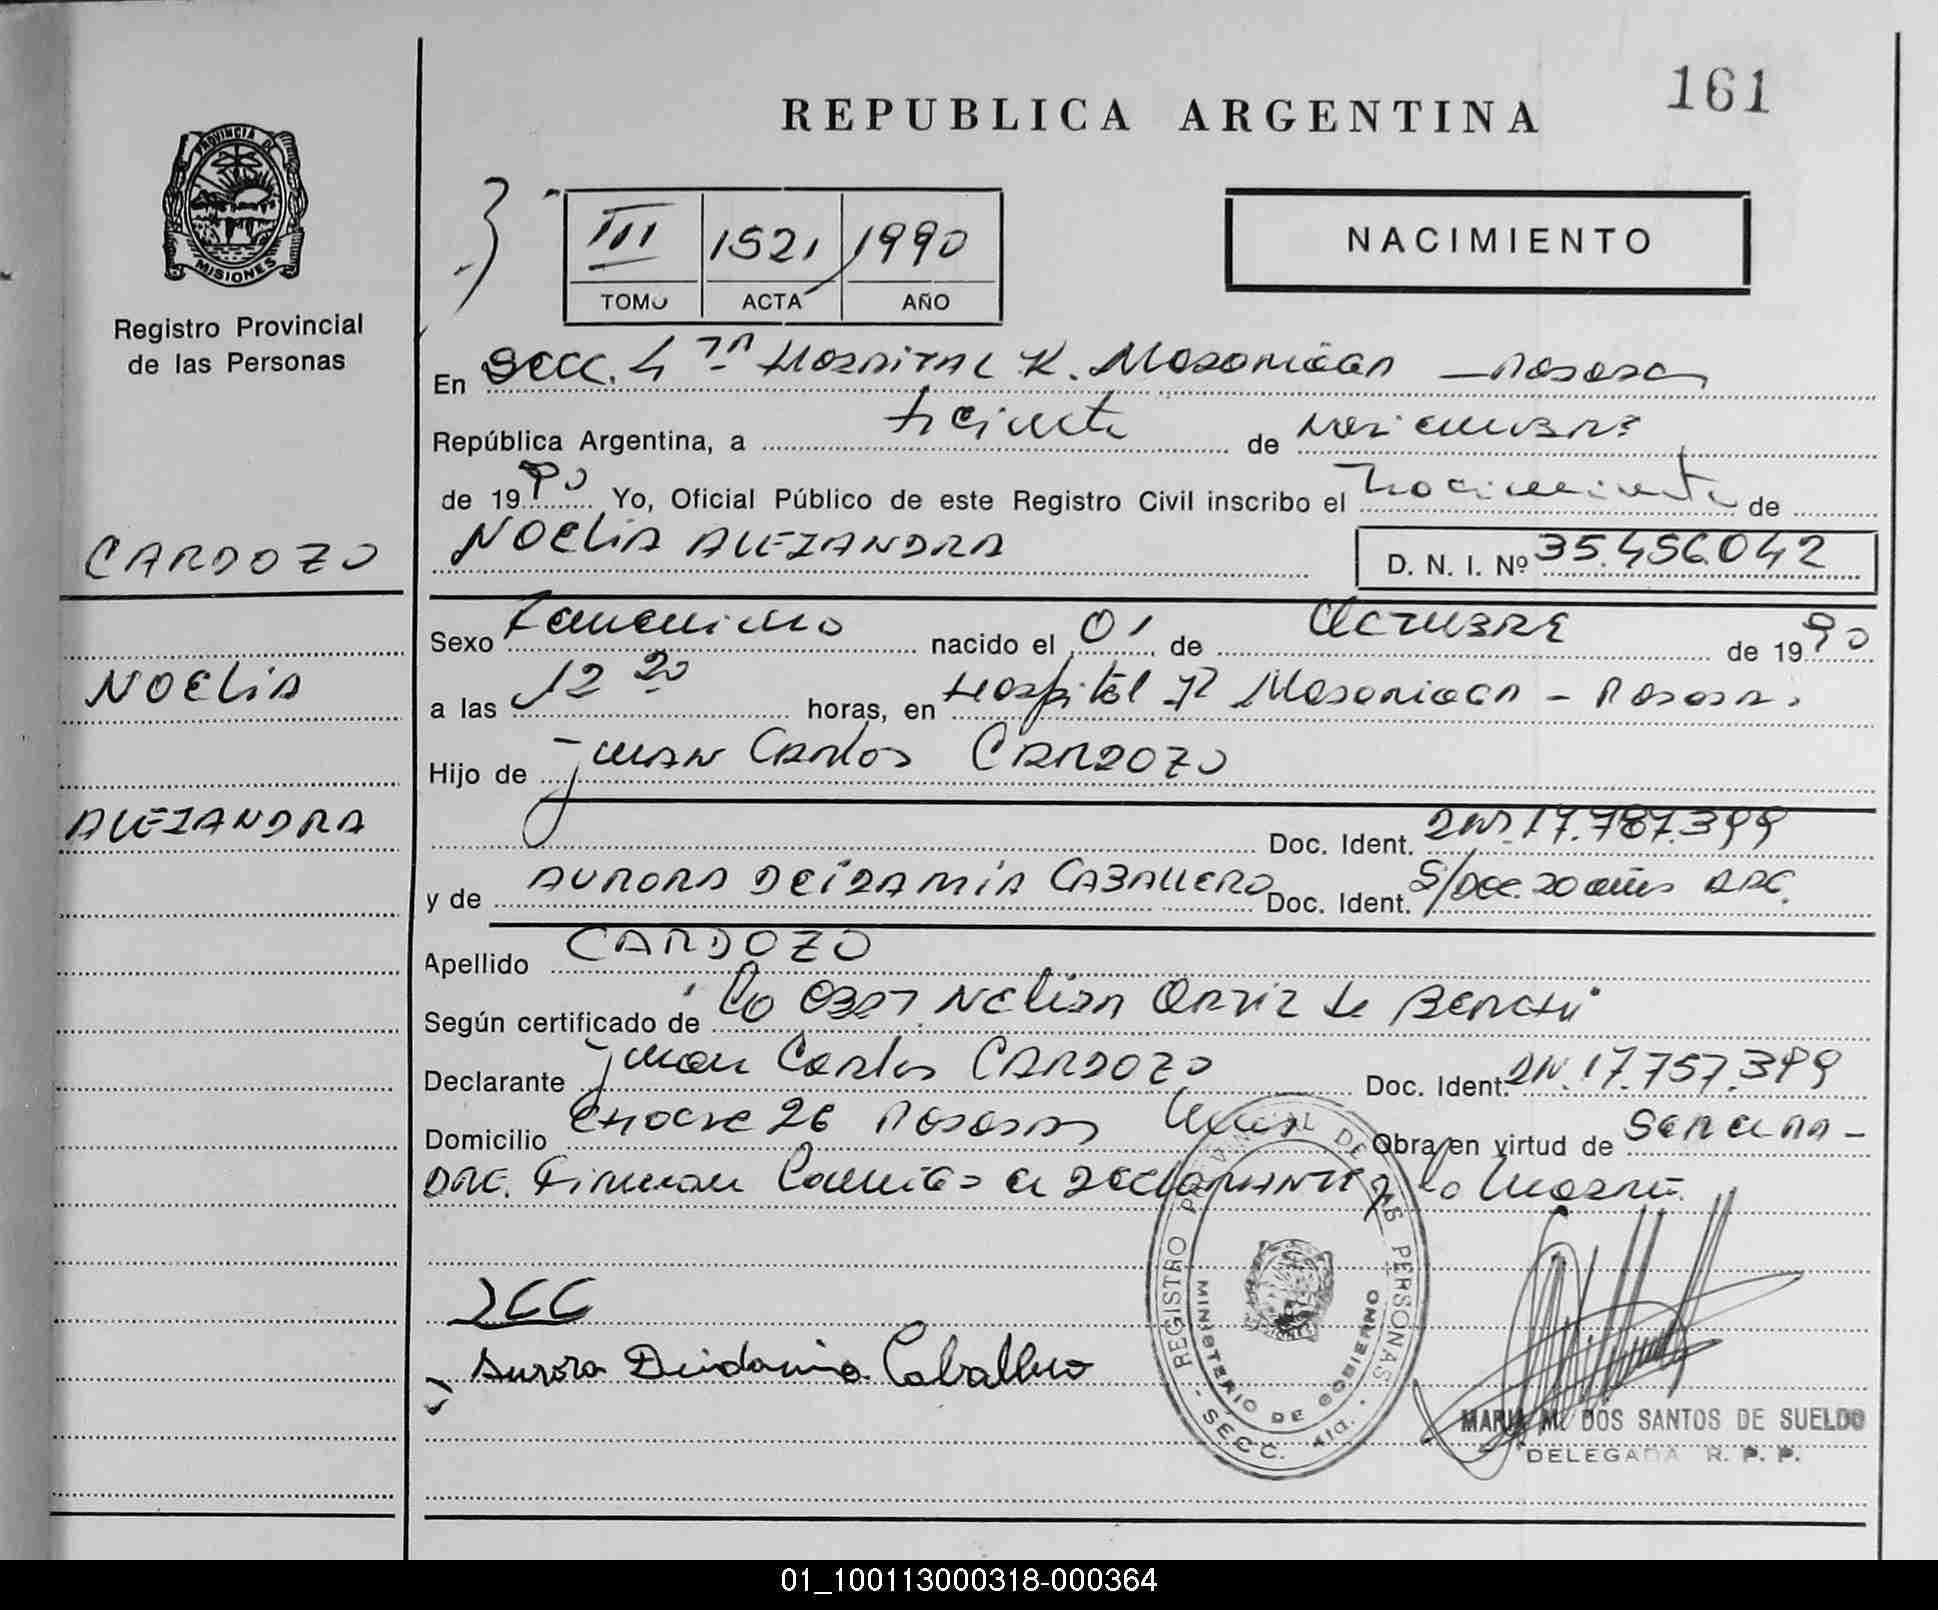 161
REPUBLICA ARGENTINA
PROVINCIA DE MISIONES
Registro Provincial
de las Personas
III 1521 1990
TOMO ACTA AÑO
NACIMIENTO
En Secc. 4 Hospital R. Madariaga - Posadas
República Argentina, a treinta de Noviembre
de 1990 Yo, Oficial Público de este Registro Civil inscribo el nacimiento de
NOELIA ALEJANDRA D. N. I. Nº 35.456.042
CARDOZO
NOELIA
ALEJANDRA
Sexo Femenino nacido el 01 de Octubre de 1990
a las 12 20 horas, en Hospital R Madariaga - Posadas
Hijo de Juan Carlos CARDOZO
Doc. Ident. DNI 17.787.399
y de AURORA DEIDAMIA CABALLERO Doc. Ident. S/Doc. 20 años ARG.
Apellido CARDOZO
Según certificado de la Obst. Nelida Ortiz de
Declarante Juan Carlos CARDOZO Doc. Ident. DN. 17.757.399
Domicilio 26 Posadas Obra en virtud de
Firman el declarante y la Madre.
JCC
Aurora Deidamia Caballero
REGISTRO PROVINCIAL DE LAS PERSONAS
MINISTERIO DE GOBIERNO
- SECC. 4ta. -
MARIA M. DOS SANTOS DE SUELDO
DELEGADA R. P. P.
01_100113000318-000364